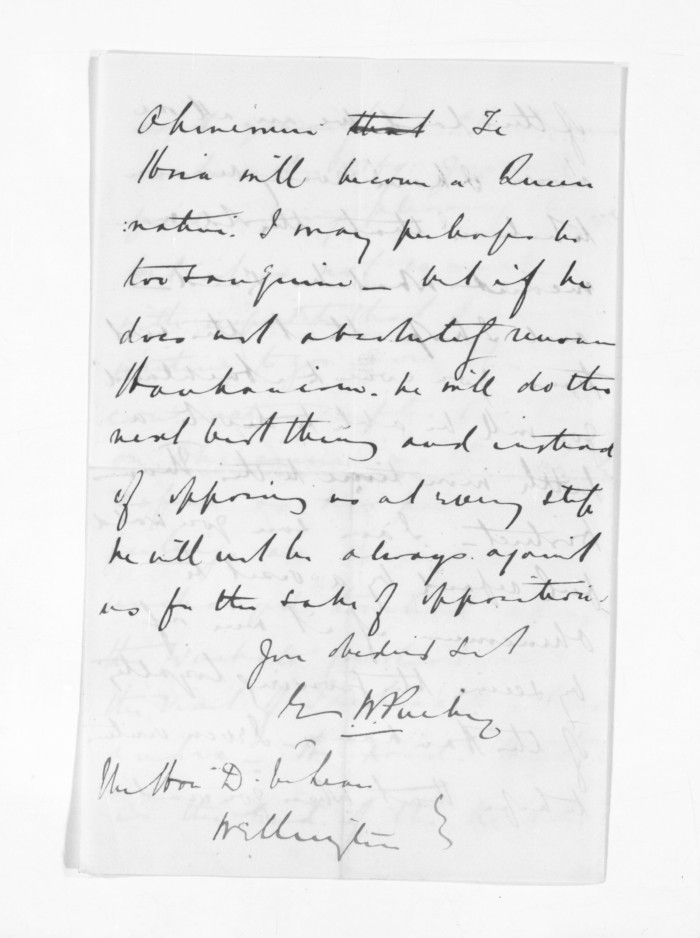 Ohinemuri that Te
Hira will become a Queen
:native. I may perhaps be
too sanguine _ but if he
does not absolutely renoun
Hauhauism. he will do the
next best thing and instead
of opposing us at every step
he will not be always against
us for the sake of opposition.
Your obedient Svt
E. W. Puckey
The Hon D. McLean
Wellington